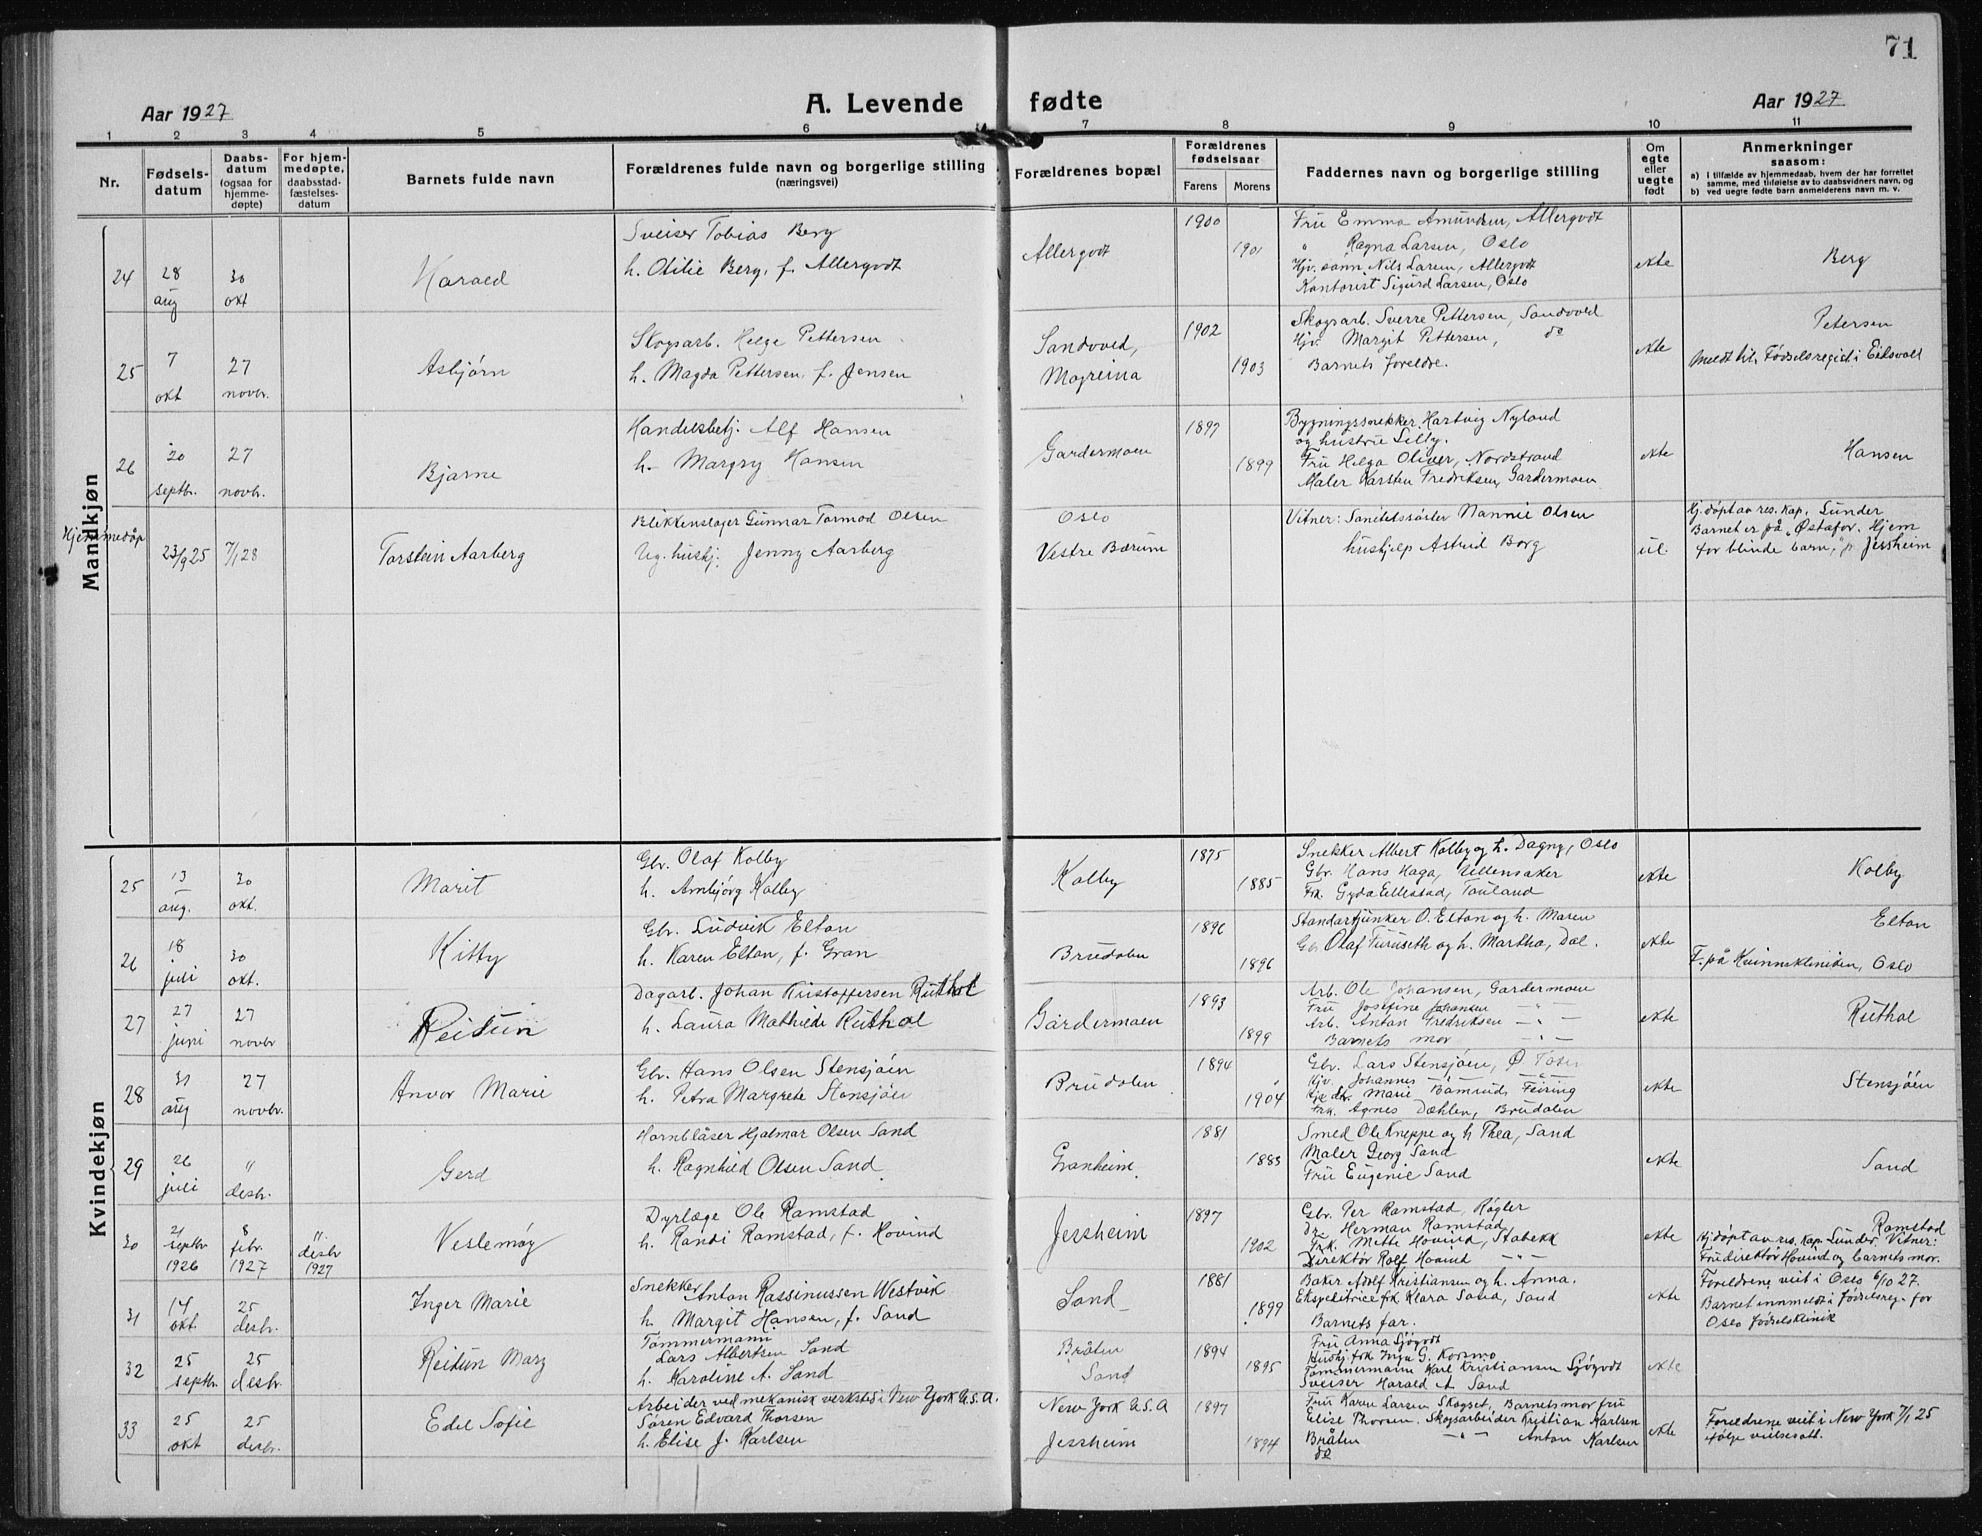 71
Aar 1927
A. Levende fødte
Aar 1927
1 2 3 4 5 6 7 8 9 10 11
Nr.
Fødsels-
datum
Daabs-
datum
(ogsaa for
hjemme-
døpte)
For hjem-
medøpte,
daabsstad-
fæstelses-
datum
Barnets fulde navn
Forældrenes fulde navn og borgerlige stilling
(næringsvei)
Forældrenes bopæl
Forældrenes
fødselsaar
Farens Morens
Faddernes navn og borgerlige stilling
Om
egte
eller
uegte
født
Anmerkninger
saasom:
a) I tilfælde av hjemmedaab, hvem der har forrettet
samme, med tilføielse av to daabsvidners navn, og
b) ved uegte fødte barn anmelderens navn m. v.
Mandkjøn
24
28
aug
30
okt
Harald
Sveiser Tobias Berg
h. Otilie Berg, f. Allergodt
Allergodt
1900
1901
Fru Emma Amundsen, Allergodt
" Ragna Larsen, Oslo
Hjv. sønn Nils Larsen, Allergodt
Kontorist Sigurd Larsen, Oslo
ekte
Berg
25
7
okt
27
novbr.
Asbjørn
Skogsarb. Helge Pettersen
h. Magda Pettersen, f. Jensen
Sandvold,
Mogreina
1902
1903
Skogsarb. Sverre Pettersen, Sandvold
Hjv. Margit Pettersen, do
Barnets foreldre.
ekte
Petersen
Meldt til Fødselsregist i Eidsvold
26
20
septbr.
27
novbr.
Bjarne
Handelsbetj. Alf Hansen
h. Margry Hansen
Gardermoen
1897
1899
Bygningssnekker Hartvig Nyland
og hustru Lilly.
Fru Helga Oliver, Nordstrand
Maler Karsten Fredriksen, Gardermoen
ekte
Hansen
Hjemmedøp
23/9 25
7/1 28
Torstein Aarberg
Blikkenslager Gunnar Tormod Olsen
Ug. hushj. Jenny Aarberg
Oslo
Vestre Bærum
Vitner: Sanitetssøster Nannie Olsen
hushjelp Astrid Borg
ul.
Hj. døpt av res. kap. Lunder
Barnet er på „Østafor. Hjem
for blinde barn," p. Jessheim
Kvindekjøn
25
13
aug.
30
okt.
Marit
Gbr. Olaf Kolby
h. Ambjørg Kolby
Kolby
1875
1885
Snekker Albert Kolby og h. Dagny, Oslo
Gbr. Hans Haga, Ullensaker
Frk. Gyda Ellestad, Tauland
ekte
Kolby
26
18
juli
30
okt.
Kitty
Gbr. Ludvik Elton
h. Karen Elton, f. Gran
Brudalen
1896
1896
Standartjunker O. Elton og h. Maren
Gbr Olaf Furuseth og h. Martha, Dal.
ekte
Elton
F. på Kvinneklinikken, Oslo
27
27
juni
27
novbr
Reidun
Dagarb. Johan Kristoffersen Ruthol
h. Laura Mathilde Ruthol
Gardermoen
1893
1899
Arb. Ole Johansen, Gardermoen
Fru Josefine Johansen — " —
Arb. Anton Fredriksen — " —
Barnets mor — " —
ekte
Ruthol
28
31
aug
27
novbr.
Anvor Marie
Gbr. Hans Olsen Stensjøen
h. Petra Margrete Stensjøen
Brudalen
1894
1904
Gbr. Lars Stensjøen, Ø Toten
Hjv. Johannes — " —
Marie Bamrud, Feiring
Frk. Agnes Dæhlen, Brudalen
ekte
Stensjøen
29
26
juli
"
desbr.
Gerd
Hornblåser Hjalmar Olsen Sand
h. Ragnhild Olsen Sand
Granheim
1881
1883
Smed Ole Kneppe og h Thea, Sand
Maler Georg Sand
Fru Eugenie Sand
ekte
Sand
30
21
septbr
1926
8
febr.
1927
11.
desbr
1927
Veslemøy
Dyrlæge Ole Ramstad
h. Randi Ramstad, f. Hovind
Jessheim
1897
1902
Gbr. Per Ramstad, Røgler
Dr. Herman Ramstad
Frk. Mette Hovind, Stabekk
Direktør Rolf Hovind — " —
ekte
Ramstad
Hj.døpt av res. kap. Lunder. Vitner:
Fru direktør Hovind og barnets mor.
31
14
okt.
25
desbr.
Inger Marie
Snekker Anton Rassinussen Westvik
h. Margit Hansen, f. Sand
Sand
1881
1899
Baker Adolf Kristiansen og h. Anna.
Ekspeditrice frk Klara Sand, Sand
Barnets far.
ekte
Foreldrene viet i Oslo 6/10 27.
Barnet innmeldt i fødselsreg. for
Oslo fødselsklinik
32
25
septbr.
25
desbr.
Reidun Mary
Tømmermann
Lars Albertsen Sand
h. Karoline A. Sand
Bråten
Sand
1894
1895
Fru Anna Sjøgodt
Hushj frk Inga G. Korsmo
Tømmermann Karl Kristiansen Sjøgodt
Sveiser Harald A Sand
ekte
33
25
okt
25
desbr.
Edel Sofie
Arbeider ved mekanisk verksted i New York U.S.A.
Søren Edvard Thorsen
h. Elise J. Karlsen
New York U.S.A
Jessheim
1897
1894
Fru Karen Larsen Skogset, Barnets mor fru
Elise Thorsen. Skogsarbeider Kristian Karlsen
Bråten — " — Anton Karlsen
do
ekte
Foreldrene viet i New York 7/1 25
ifølge vielsesatt.